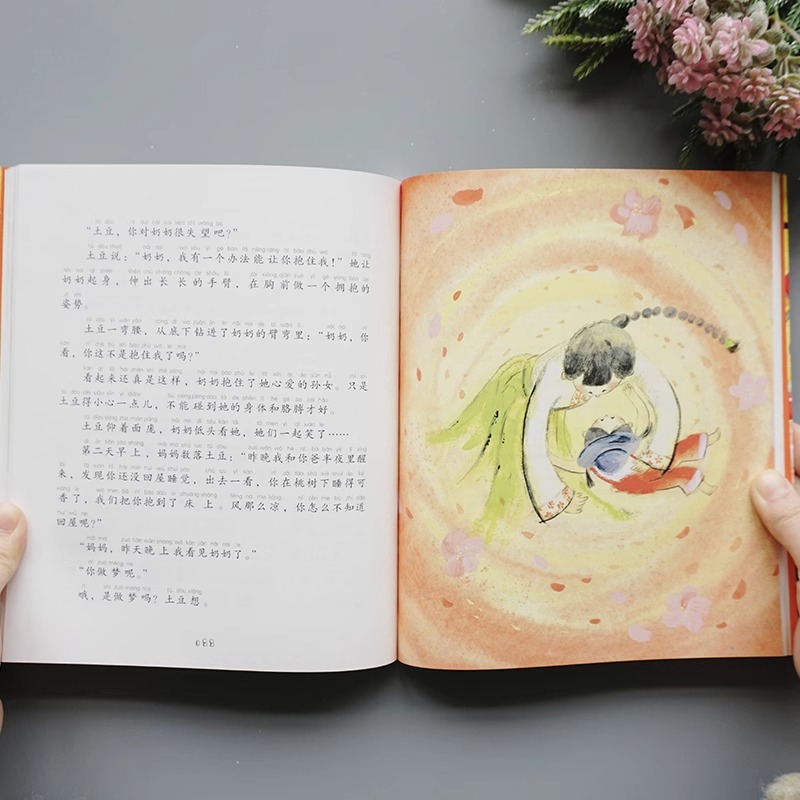 “土豆，你对奶奶很失望吧？”
土豆说：“奶奶，我有一个办法能让你抱住我！”她让
奶奶起身，伸出长长的手臂，在胸前做一个拥抱的
姿势。
土豆一弯腰，从底下钻进了奶奶的臂弯里：“奶奶，你
看，你这不是抱住我了吗？”
看起来还真是这样，奶奶抱住了她心爱的孙女。只是
土豆得小心一点儿，不能碰到她的身体和胳膊才好。
土豆仰着面庞，奶奶低头看她，她们一起笑了……
第二天早上，妈妈数落土豆：“昨晚我和你爸半夜里醒
来，发现你还没回屋睡觉，出去一看，你在桃树下睡得可
香了，我们把你抱到了床上。风那么凉，你怎么不知道
回屋呢？”
“妈妈，昨天晚上我看见奶奶了。”
“你做梦呢。”
哦，是做梦吗？土豆想。
088